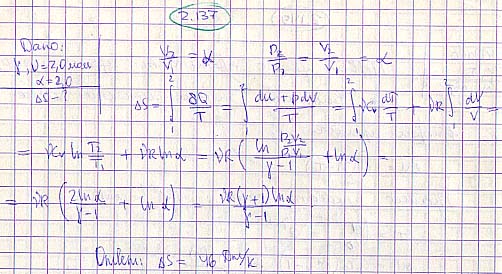 2.137
Дано:
γ, ν = 2,0 моль
α = 2,0
ΔS - ?
V₂/V₁ = α  p₂/p₁ = V₂/V₁ = α
ΔS = ∫₁² δQ/T = ∫₁² (dU + pdV)/T = ∫₁² νCv dT/T + νR ∫₁² dV/V =
= νCv ln T₂/T₁ + νR ln α = νR ( (ln p₂V₂/p₁V₁)/(γ-1) + ln α ) =
= νR ( 2 ln α/(γ-1) + ln α ) = νR(γ+1) ln α/(γ-1)
Ответ: ΔS = 46 Дж/К.